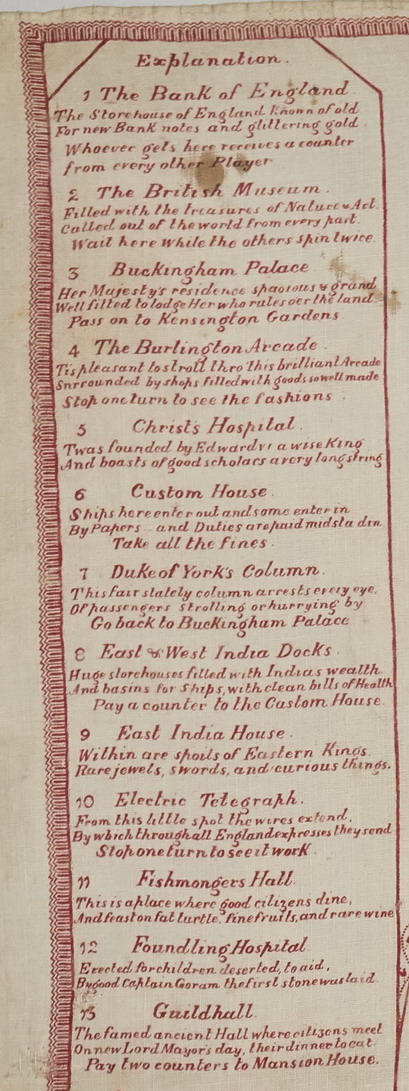 Explanation.
1 The Bank of England
The Storehouse of England known of old
For new Bank notes and glittering gold
Whoever gets here receives a counter
from every other Player
2 The British Museum.
Filled with the treasures of Nature & Art.
Called out of the world from every part.
Wait here while the others spin twice.
3 Buckingham Palace
Her Majesty's residence spacious & grand
Well fitted to lodge Her who rules oer the land
Pass on to Kensington Gardens
4 The Burlington Arcade.
Tis pleasant to stroll thro this brilliant Arcade
Snrrounded by shops filled with goods so well made
Stop one turn to see the fashions.
5 Christs Hospital.
Twas founded by Edward VI a wise King
And boasts of good scholars a very long string
6 Custom House.
Ships here enter out and some enter in
By Papers and Duties are paid midst a din
Take all the fines.
7 Duke of York's Column.
This fair stately column arrests every eye.
Of passengers strolling or hurrying by
Go back to Buckingham Palace
8 East & West India Docks.
Huge storehouses filled with Indias wealth.
And basins for Ships, with clean bills of Health
Pay a counter to the Custom House.
9 East India House.
Within are spoils of Eastern Kings.
Rare jewels, swords, and curious things.
10 Electric Telegraph.
From this little spot the wires extend.
By which through all England expresses they send
Stop one turn to see it work.
11 Fishmongers Hall.
This is a place where good citizens dine,
And feast on fat turtle. fine fruits, and rare wine
12 Foundling Hospital.
Erected for children deserted, to aid,
By good Captain Goram the first stone was laid.
13 Guildhall.
The famed ancient Hall where citizens meet
On new Lord Mayor's day, their dinner to eat.
Pay two counters to Mansion House.